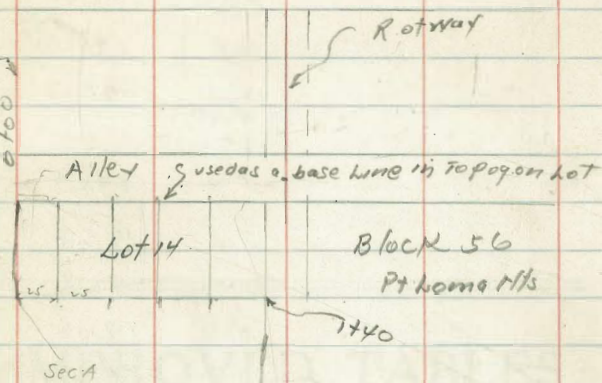 R of Way
0+00
Alley
used as a base Line in Topog on Lot
Lot 14
Block 56
Pt Loma Hts
25 25
1+40
Sec A